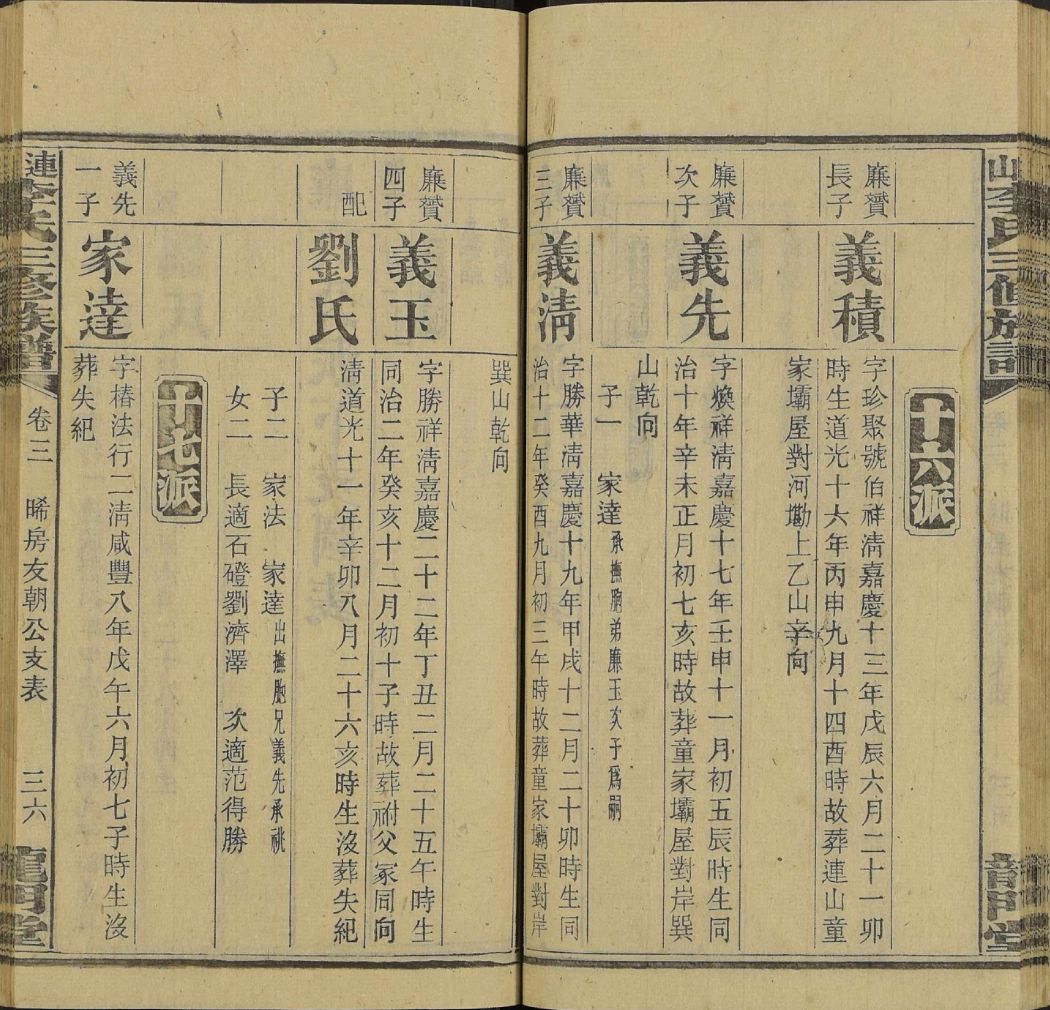 十六派
廉贇長子
義積
字珍聚號伯祥淸嘉慶十三年戊辰六月二十一卯
時生道光十六年丙申九月十四酉時故葬連山童
家壩屋對河墈上乙山辛向
廉贇次子
義先
字煥祥淸嘉慶十七年壬申十一月初五辰時生同
治十年辛未正月初七亥時故葬童家壩屋對岸巽
山乾向
子一 家達承撫胞弟廉玉次子爲嗣
廉贇三子
義淸
字勝華淸嘉慶十九年甲戌十二月二十卯時生同
治十二年癸酉九月初三午時故葬童家壩屋對岸
巽山乾向
廉贇四子
義玉
字勝祥淸嘉慶二十二年丁丑二月二十五午時生
同治二年癸亥十二月初十子時故葬祔父冢同向
配
劉氏
淸道光十一年辛卯八月二十六亥時生沒葬失紀
子二 家法 家達出撫胞兄義先承祧
女二 長適石磴劉濟澤 次適范得勝
十七派
義先一子
家達
字椿法行二淸咸豐八年戊午六月初七子時生沒
葬失紀
連李氏三修族譜 卷三 晞房友朝公支表 三六 龍門堂